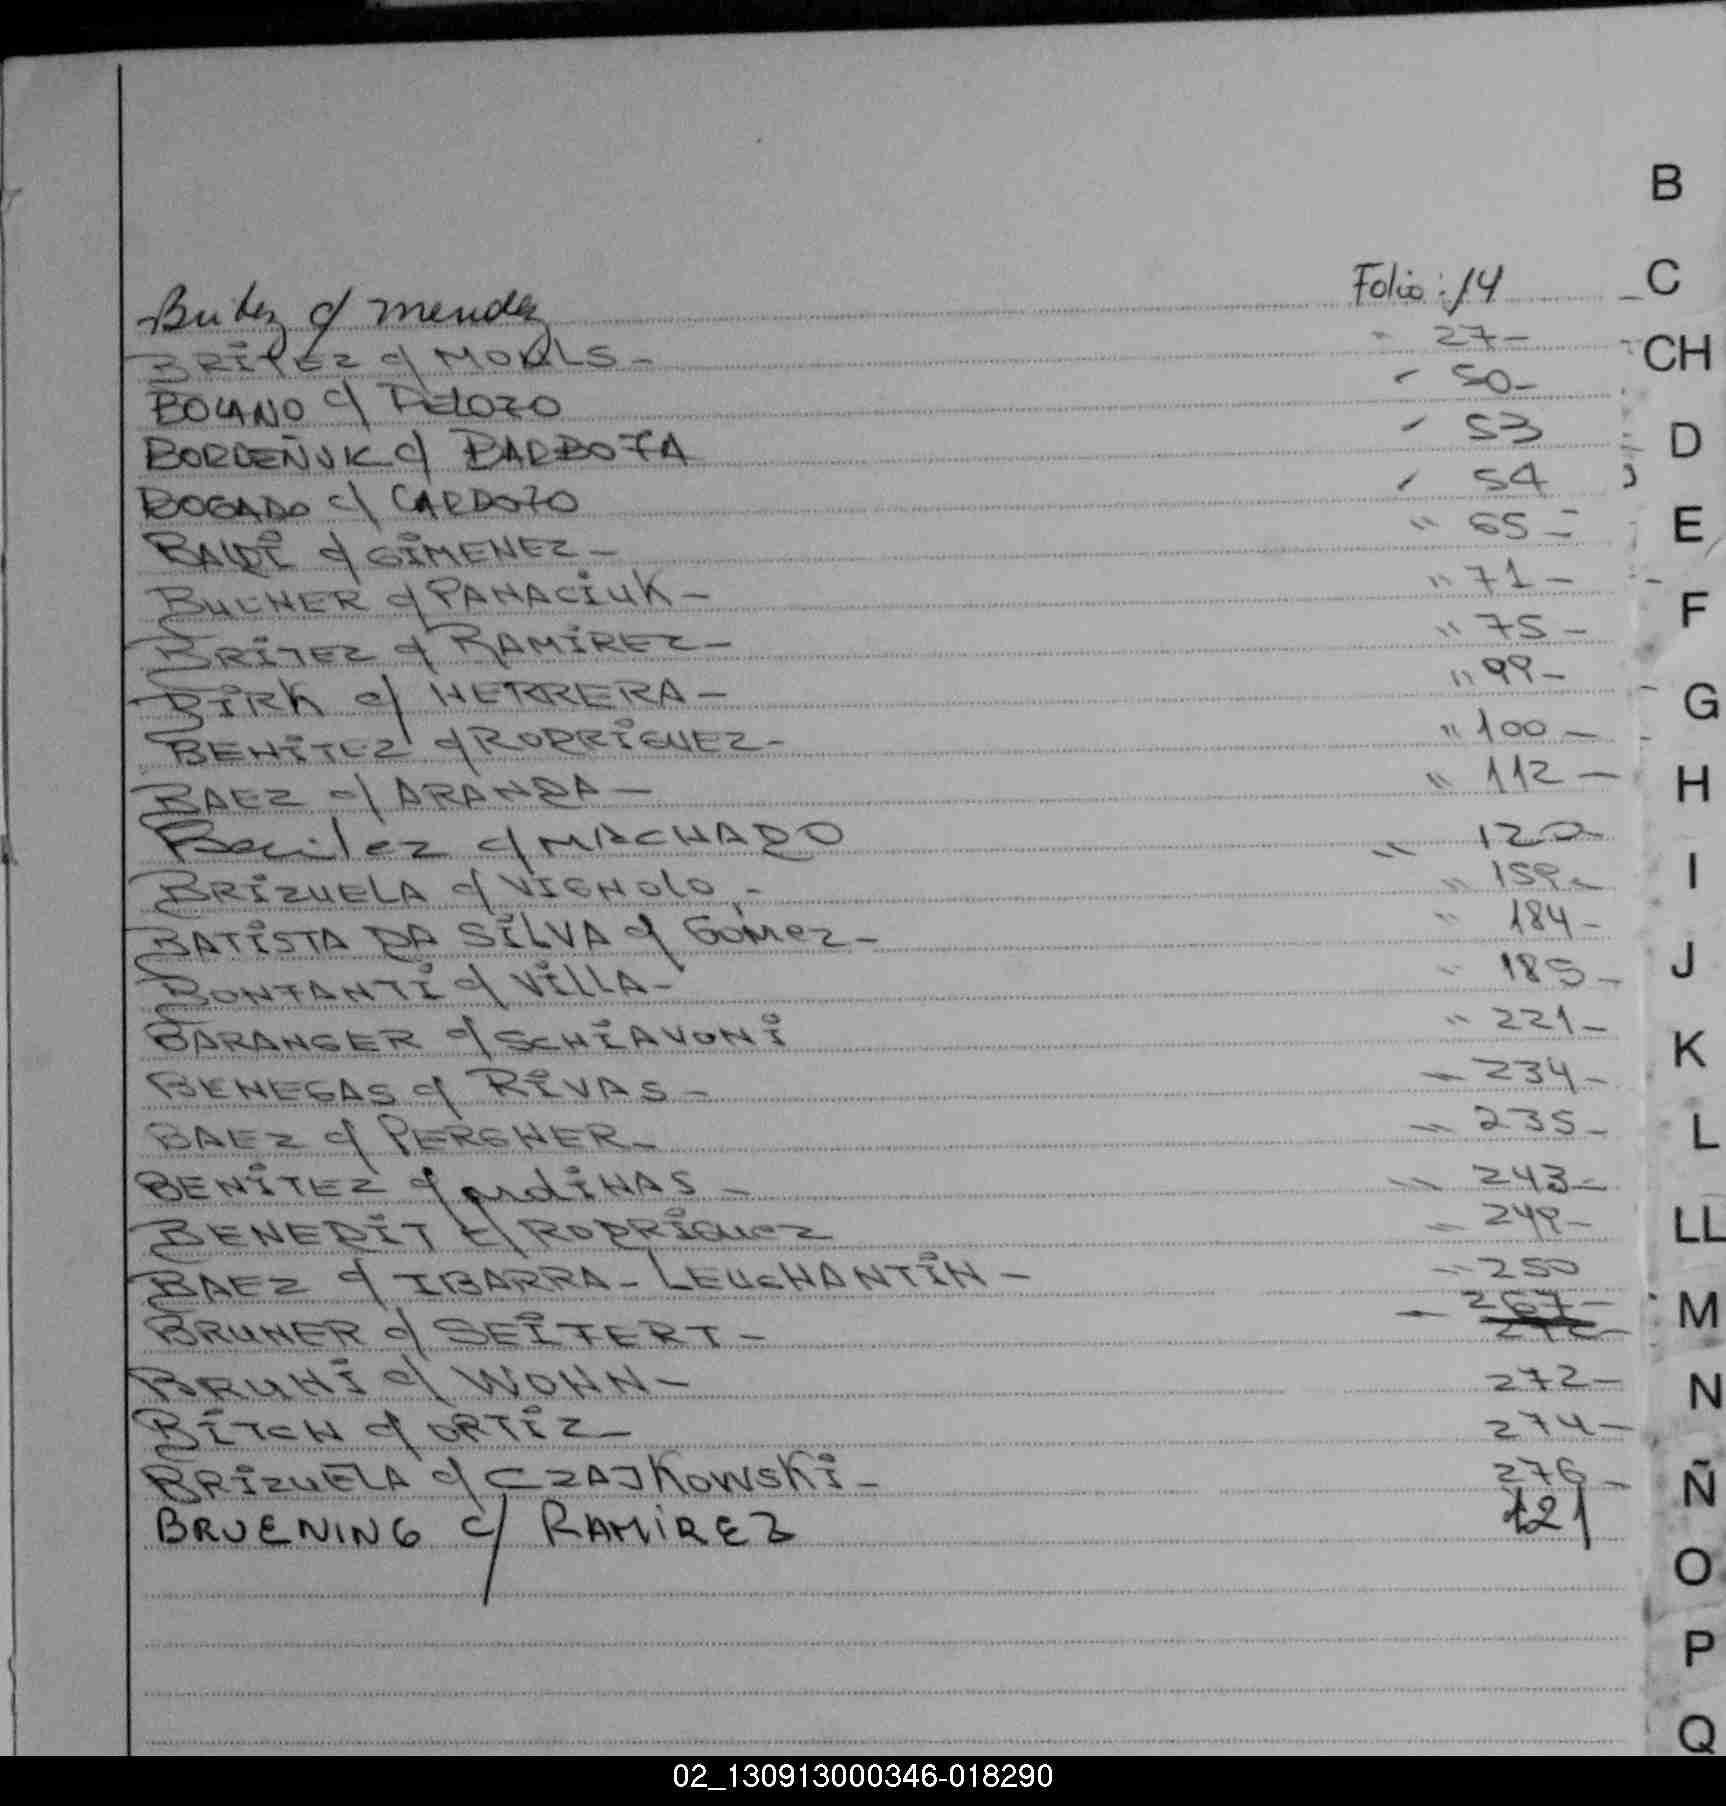 B
Britez c/ Mendez Folio: 14
C
BRITEZ c/ MORLS - " 27-
CH
BOLANO c/ PELOZO " 50-
BORDEÑUK c/ BARBOZA " 53
D
BOGADO c/ CARDOZO " 54
BALDI c/ GIMENEZ - " 65-
E
BULNER c/ PANACIUK - " 71-
F
BRITEZ c/ RAMIREZ - " 75-
BIRK c/ HERRERA - " 99-
G
BENITEZ c/ RODRIGUEZ - " 100-
BAEZ c/ ARANDA - " 112-
H
Benitez c/ MACHADO " 120
BRIZUELA c/ VIGNOLO - " 159-
I
BATISTA DA SILVA c/ GOMEZ - " 184-
BONTANTI c/ VILLA - " 185-
J
BARANGER c/ SCHIAVONI " 221-
K
BENEGAS c/ RIVAS - " 234-
BAEZ c/ PERGHER - " 235-
L
BENITEZ c/ ardinas - " 243-
BENEDIT c/ RODRIGUEZ " 249-
LL
BAEZ c/ IBARRA - LEUCHANTIN - " 250
BRUNER c/ SEITERT - " 267-
M
BRUNI c/ WOHN - 272-
N
BITCH c/ ORTIZ - 274-
BRIZUELA c/ CZAJKOWSKI - 276-
Ñ
BRUENING c/ RAMIREZ 121
O
P
Q
02_130913000346-018290